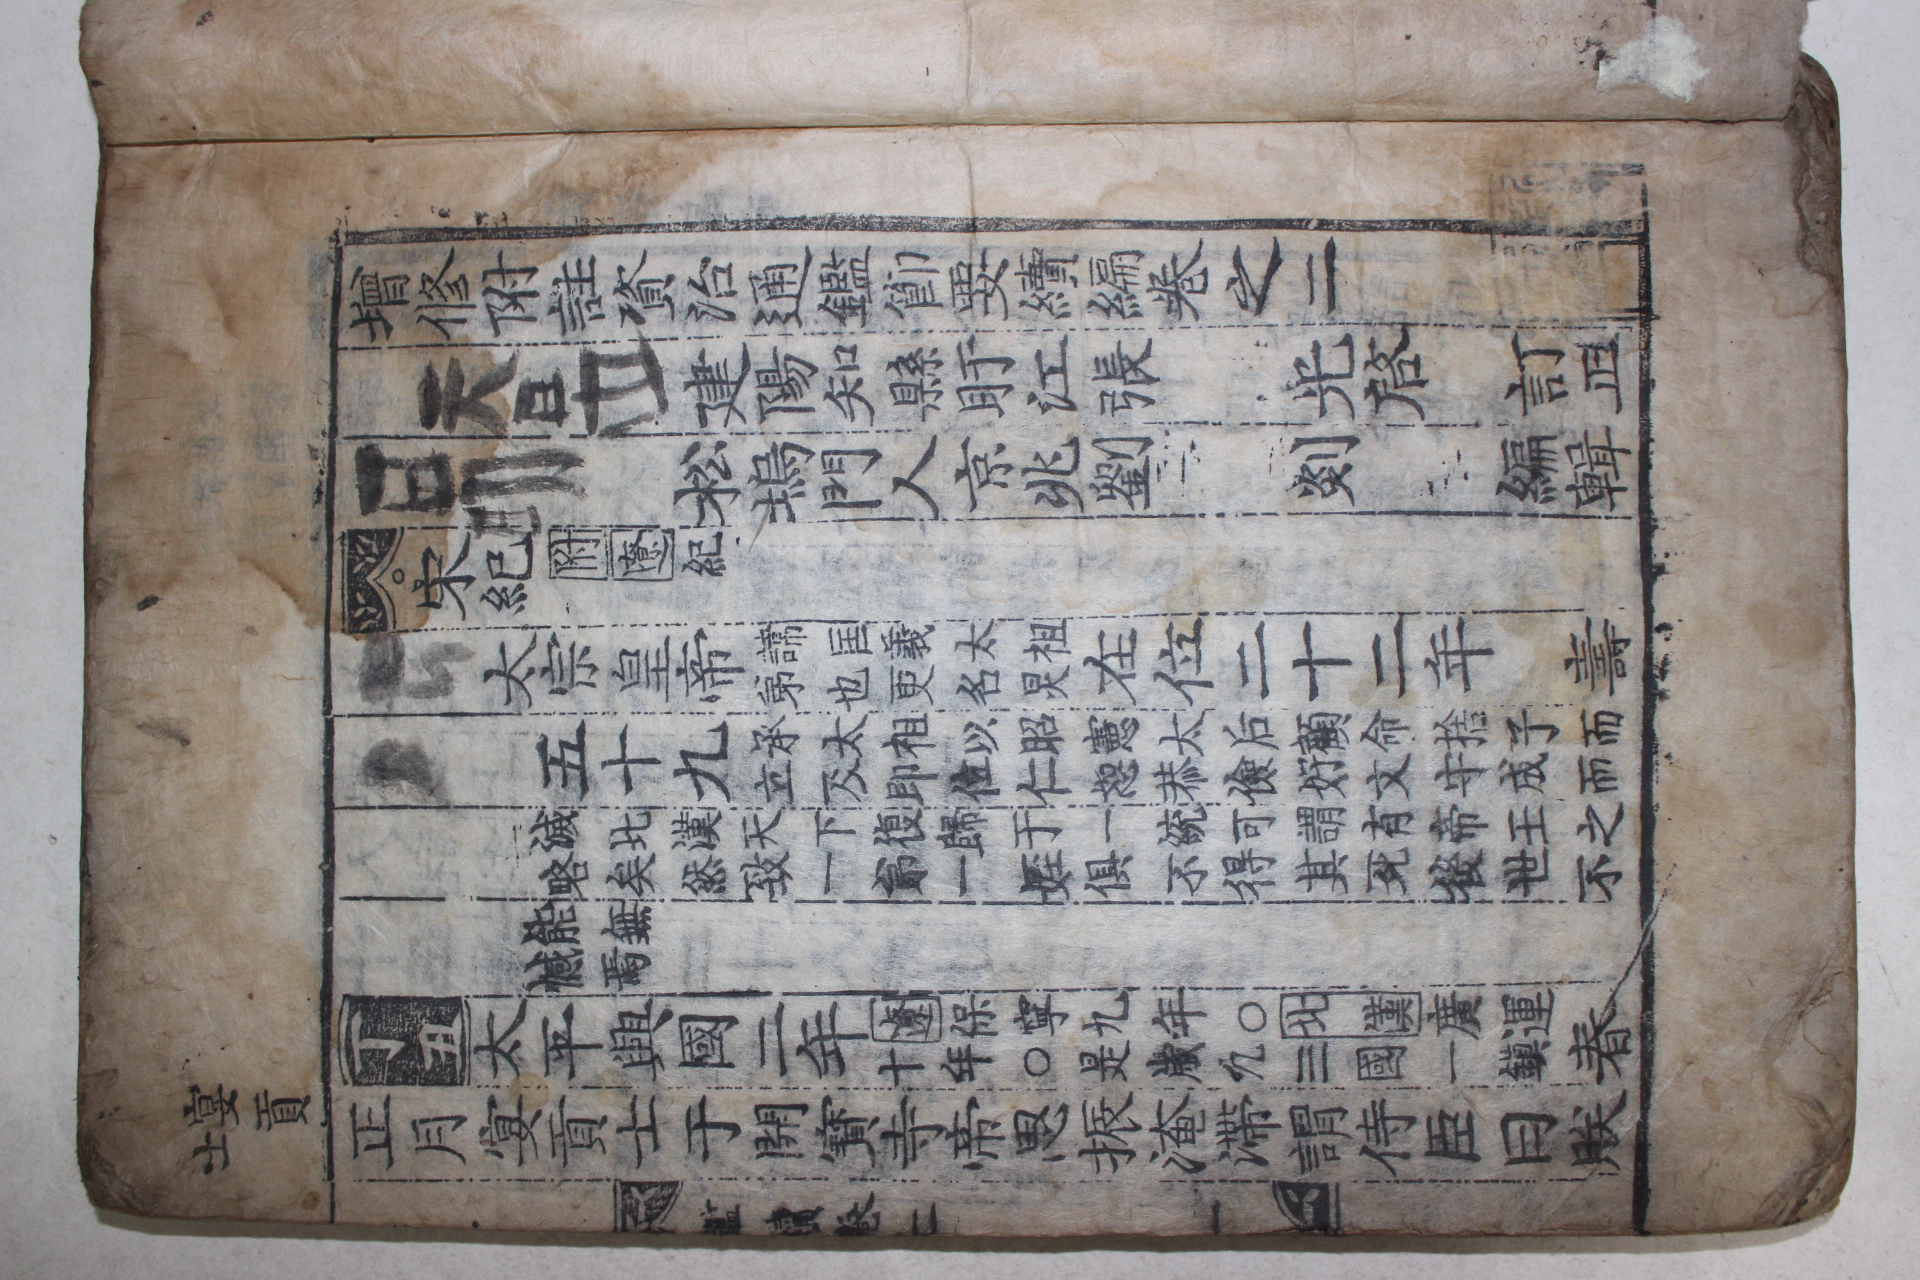 增修附註資治通鑑節要續編卷之二
建陽知縣盱江張 光啓 訂正
松塢門人京兆劉 剡 編輯
宋紀 附遼紀
太宗皇帝
諱匡義太祖
第也更名炅
在位二十二年 壽
五十九
承太祖以昭憲太后顧命捨子而
立及即位仁恕恭儉好文守成而
滅北漢天下復歸于一統可謂有帝王之
略矣然致一弟一姪俱不得其死後世不
能無
憾焉
丁丑太平興國二年
遼保寧九年〇北漢廣運
十年〇是歲凡三國一鎮
春
宴貢
士
正月宴貢士于開寶寺帝思振淹滯謂侍臣曰朕
鑑續卷二 一